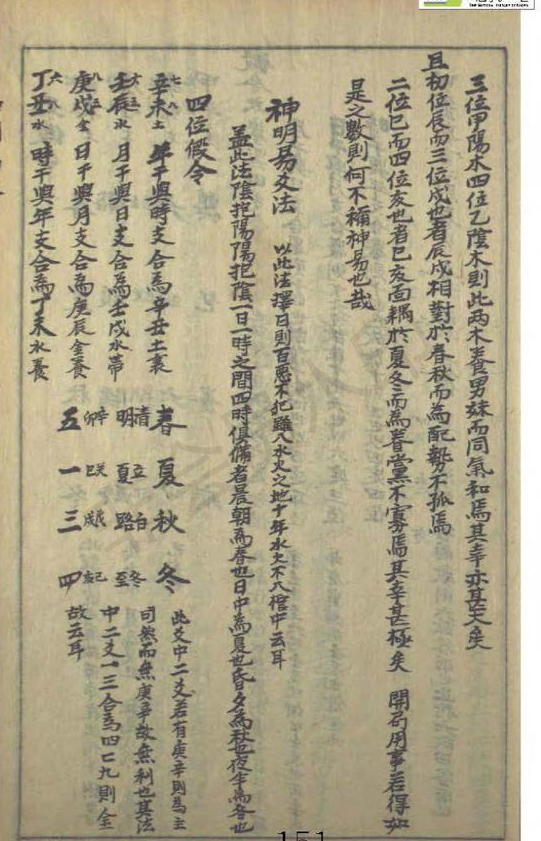 三位甲陽木四位乙陰木則此两木養男妹而同氣和焉其幸亦甚矣矣
且初位辰而三位戌也者辰戌相對於春秋而為配勢不孤焉
二位巳而四位亥也者巳亥面耦於夏冬而為眷黨不寡焉其幸甚極矣 開局用事若得如
是之數則何不稱神易也哉
神明易爻法 以此法擇日則百惡不犯雖入水火之地十年水火不入棺中云耳
盖此法陰抱陽陽抱陰一日一時之間四時俱備者晨朝為春也日中為夏也昏夕為秋也夜半為冬也
四位假令
辛未土 年干與時支合為辛丑土衰
壬辰水 月干與日支合為壬戌水帶
庚戌金 日干與月支合為庚辰金養
丁丑水 時干與年支合為丁未水養
春 夏 秋 冬
清明 立夏 白露 冬至
五 一 三 四
此爻中二爻若有庚辛則為主
司然而無庚辛故無利也其法
中二爻一三合為四七九則金
故云耳
151